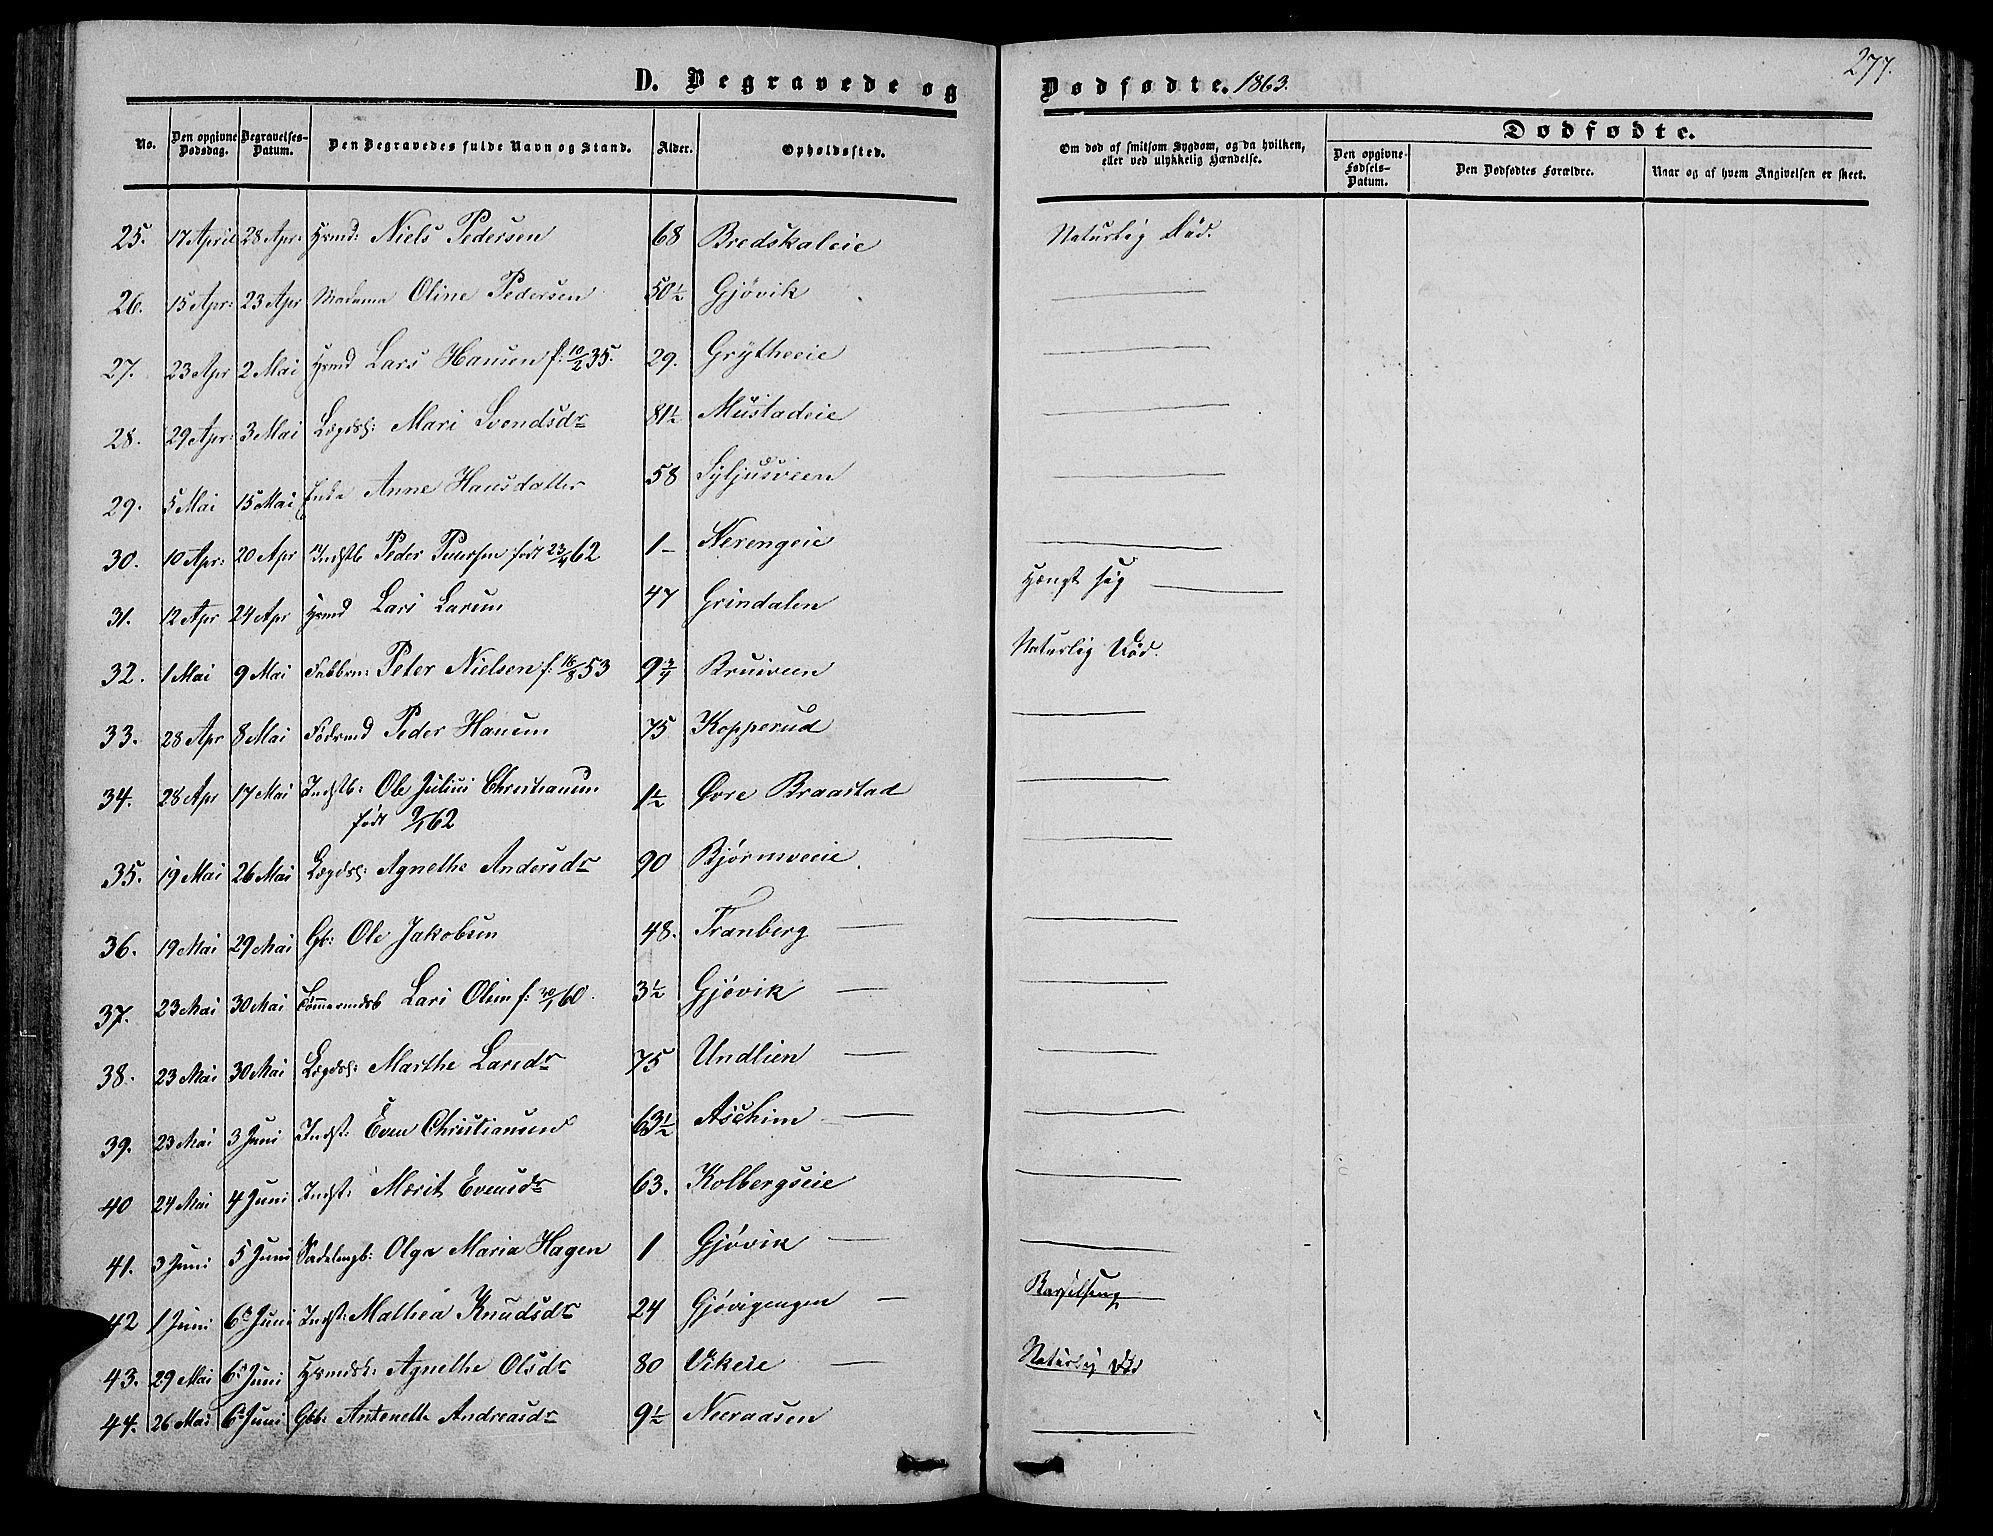 277.
D. Begravede og Dødfødte. 1863.
No. Den opgivne Dødsdag. Begravelses-Datum. Den Begravedes fulde Navn og Stand. Alder. Opholdssted. Om død af smitsom Sygdom, og da hvilken, eller ved ulykkelig Hændelse. Dødfødte.
Den opgivne Fødsels-Datum. Den Dødfødtes Forældre. Naar og af hvem Angivelsen er skeet.
25. 17 April 28 Apr. Hsmd: Niels Pedersen 68 Bredskaleie Naturlig Død.
26. 15 Apr: 23 Apr Madame Oline Pedersen 50½ Gjøvik —
27. 23 Apr 2 Mai Hsmd Lars Hansen f: 10/2 35. 29. Grytheeie —
28. 29 Apr: 3 Mai Lægdsl: Mari Svendsdr 81½ Mustadeie —
29. 5 Mai 15 Mai Enke Anne Hansdatter 58 Syljusveen —
30. 10 Apr: 20 Apr Indstb Peder Pedersen født 23/4 62 1 – Nerengeie —
31. 12 Apr 24 Apr Hsmd Lars Larsen 47 Grindalen Hængt sig —
32. 1 Mai 9 Mai Fabbrn: Peter Nielsen f: 16/8 53 9¾ Bruiveen Naturlig Død.
33. 28 Apr 8 Mai Födrmd Peder Hansen 75 Kopperud —
34. 28 Apr 17 Mai Indstb: Ole Julius Christiansen 1½ Øvre Braastad —
født 9/1 62
35. 19 Mai 26 Mai Lægdsl: Agnethe Andersdr 90 Bjørnsveeie —
36. 19 Mai 29 Mai Gb: Ole Jakobsen 48. Tranberg — —
37. 23 Mai 30 Mai Tømmermdsb Lars Olsen f: 30/1 60. 3½ Gjøvik — —
38. 23 Mai 30 Mai Lægdsl: Marthe Larsdr 75 Undlien — —
39. 23 Mai 3 Juni Indst: Even Christiansen 63½ Aschim — —
40 24 Mai 4 Juni Indst: Marit Evensdr 63. Kolbergseie —
41. 3 Juni 5 Juni Sadelmgb: Olga Maria Hagen 1 Gjøvik — —
42 1 Juni 6 Juni Indst: Mathea Knudsdr 24 Gjøvigengen — Barselseng
43. 29 Mai 6 Juni Hsmdsk: Agnethe Olsdr 80 Vikeie — Naturlig Død
44. 26 Mai 6 Juni Gbb: Antonette Andreasdr 9½ Neeraasen —